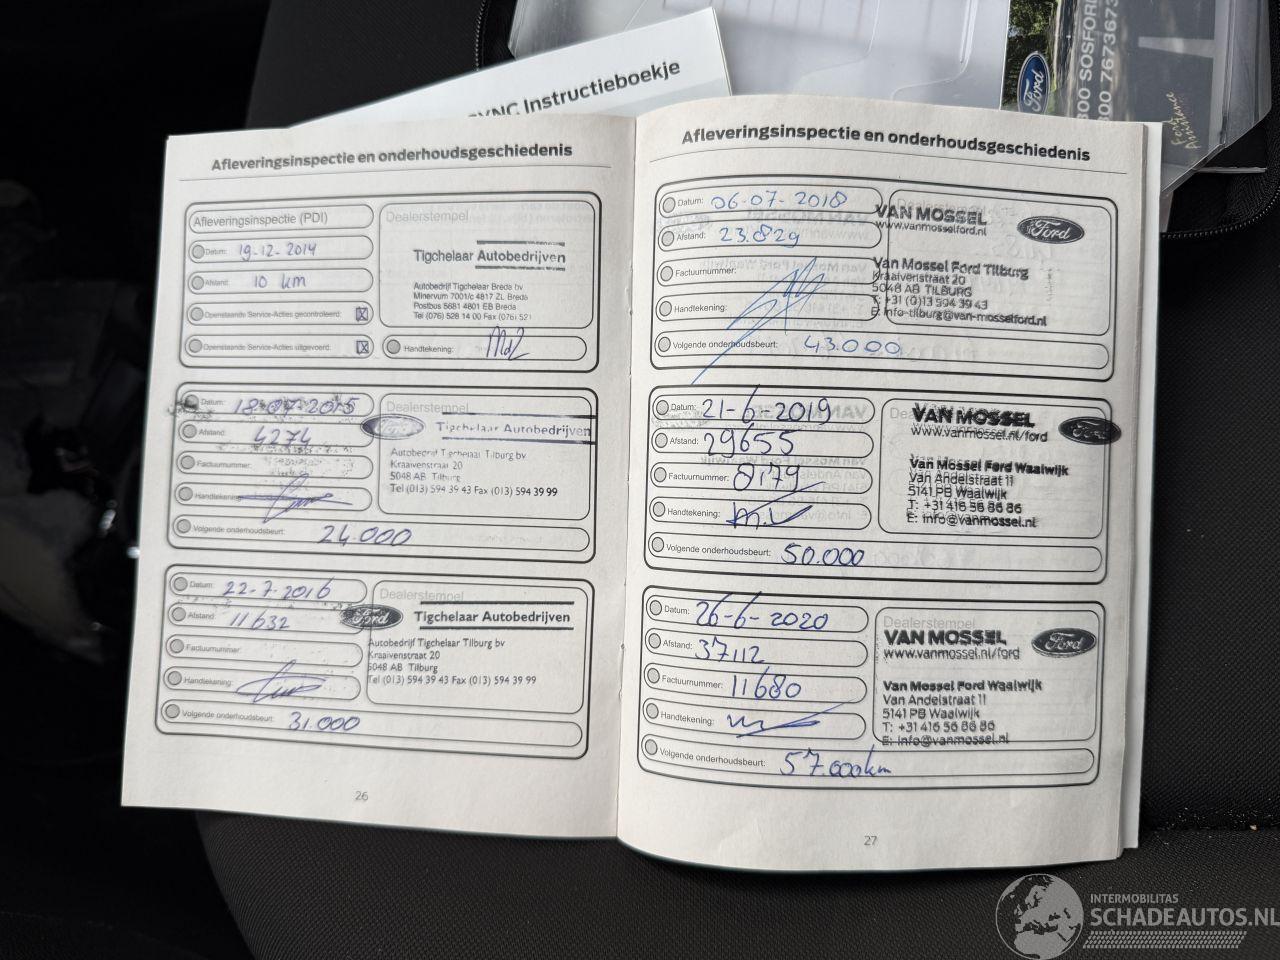 SYNC Instructieboekje
Ford
800 SOSFORD
00 7673673
Afleveringsinspectie en onderhoudsgeschiedenis
Afleveringsinspectie (PDI)
Datum: 19-12-2014
Afstand: 10 km
Openstaande Service-Acties gecontroleerd: X
Openstaande Service-Acties uitgevoerd: X
Dealerstempel
Tigchelaar Autobedrijven
Autobedrijf Tigchelaar Breda bv
Minervum 7001/c 4817 ZL Breda
Postbus 5681 4801 EB Breda
Tel (076) 528 14 00 Fax (076) 521
Handtekening:
Datum: 18-07-2015
Afstand: 4274
Factuurnummer:
Handtekening:
Volgende onderhoudsbeurt: 24.000
Dealerstempel
Ford Tigchelaar Autobedrijven
Autobedrijf Tigchelaar Tilburg bv
Kraaivenstraat 20
5048 AB Tilburg
Tel (013) 594 39 43 Fax (013) 594 39 99
Datum: 22-7-2016
Afstand: 11632
Factuurnummer:
Handtekening:
Volgende onderhoudsbeurt: 31.000
Dealerstempel
Ford Tigchelaar Autobedrijven
Autobedrijf Tigchelaar Tilburg bv
Kraaivenstraat 20
5048 AB Tilburg
Tel (013) 594 39 43 Fax (013) 594 39 99
26
Afleveringsinspectie en onderhoudsgeschiedenis
Datum: 06-07-2018
Afstand: 23.829
Factuurnummer:
Handtekening:
Volgende onderhoudsbeurt: 43.000
Dealerstempel
VAN MOSSEL Ford
www.vanmosselford.nl
Van Mossel Ford Tilburg
Kraaivenstraat 20
5048 AB TILBURG
T: +31 (0)13 594 39 43
E: info-tilburg@van-mosselford.nl
Datum: 21-6-2019
Afstand: 29655
Factuurnummer: 8179
Handtekening:
Volgende onderhoudsbeurt: 50.000
VAN MOSSEL Ford
www.vanmossel.nl/ford
Van Mossel Ford Waalwijk
Van Andelstraat 11
5141 PB Waalwijk
T: +31 416 56 86 86
E: info@vanmossel.nl
Datum: 26-6-2020
Afstand: 37112
Factuurnummer: 11680
Handtekening:
Volgende onderhoudsbeurt: 57.000km
Dealerstempel
VAN MOSSEL Ford
www.vanmossel.nl/ford
Van Mossel Ford Waalwijk
Van Andelstraat 11
5141 PB Waalwijk
T: +31 416 56 86 86
E: info@vanmossel.nl
27
INTERMOBILITAS
SCHADEAUTOS.NL